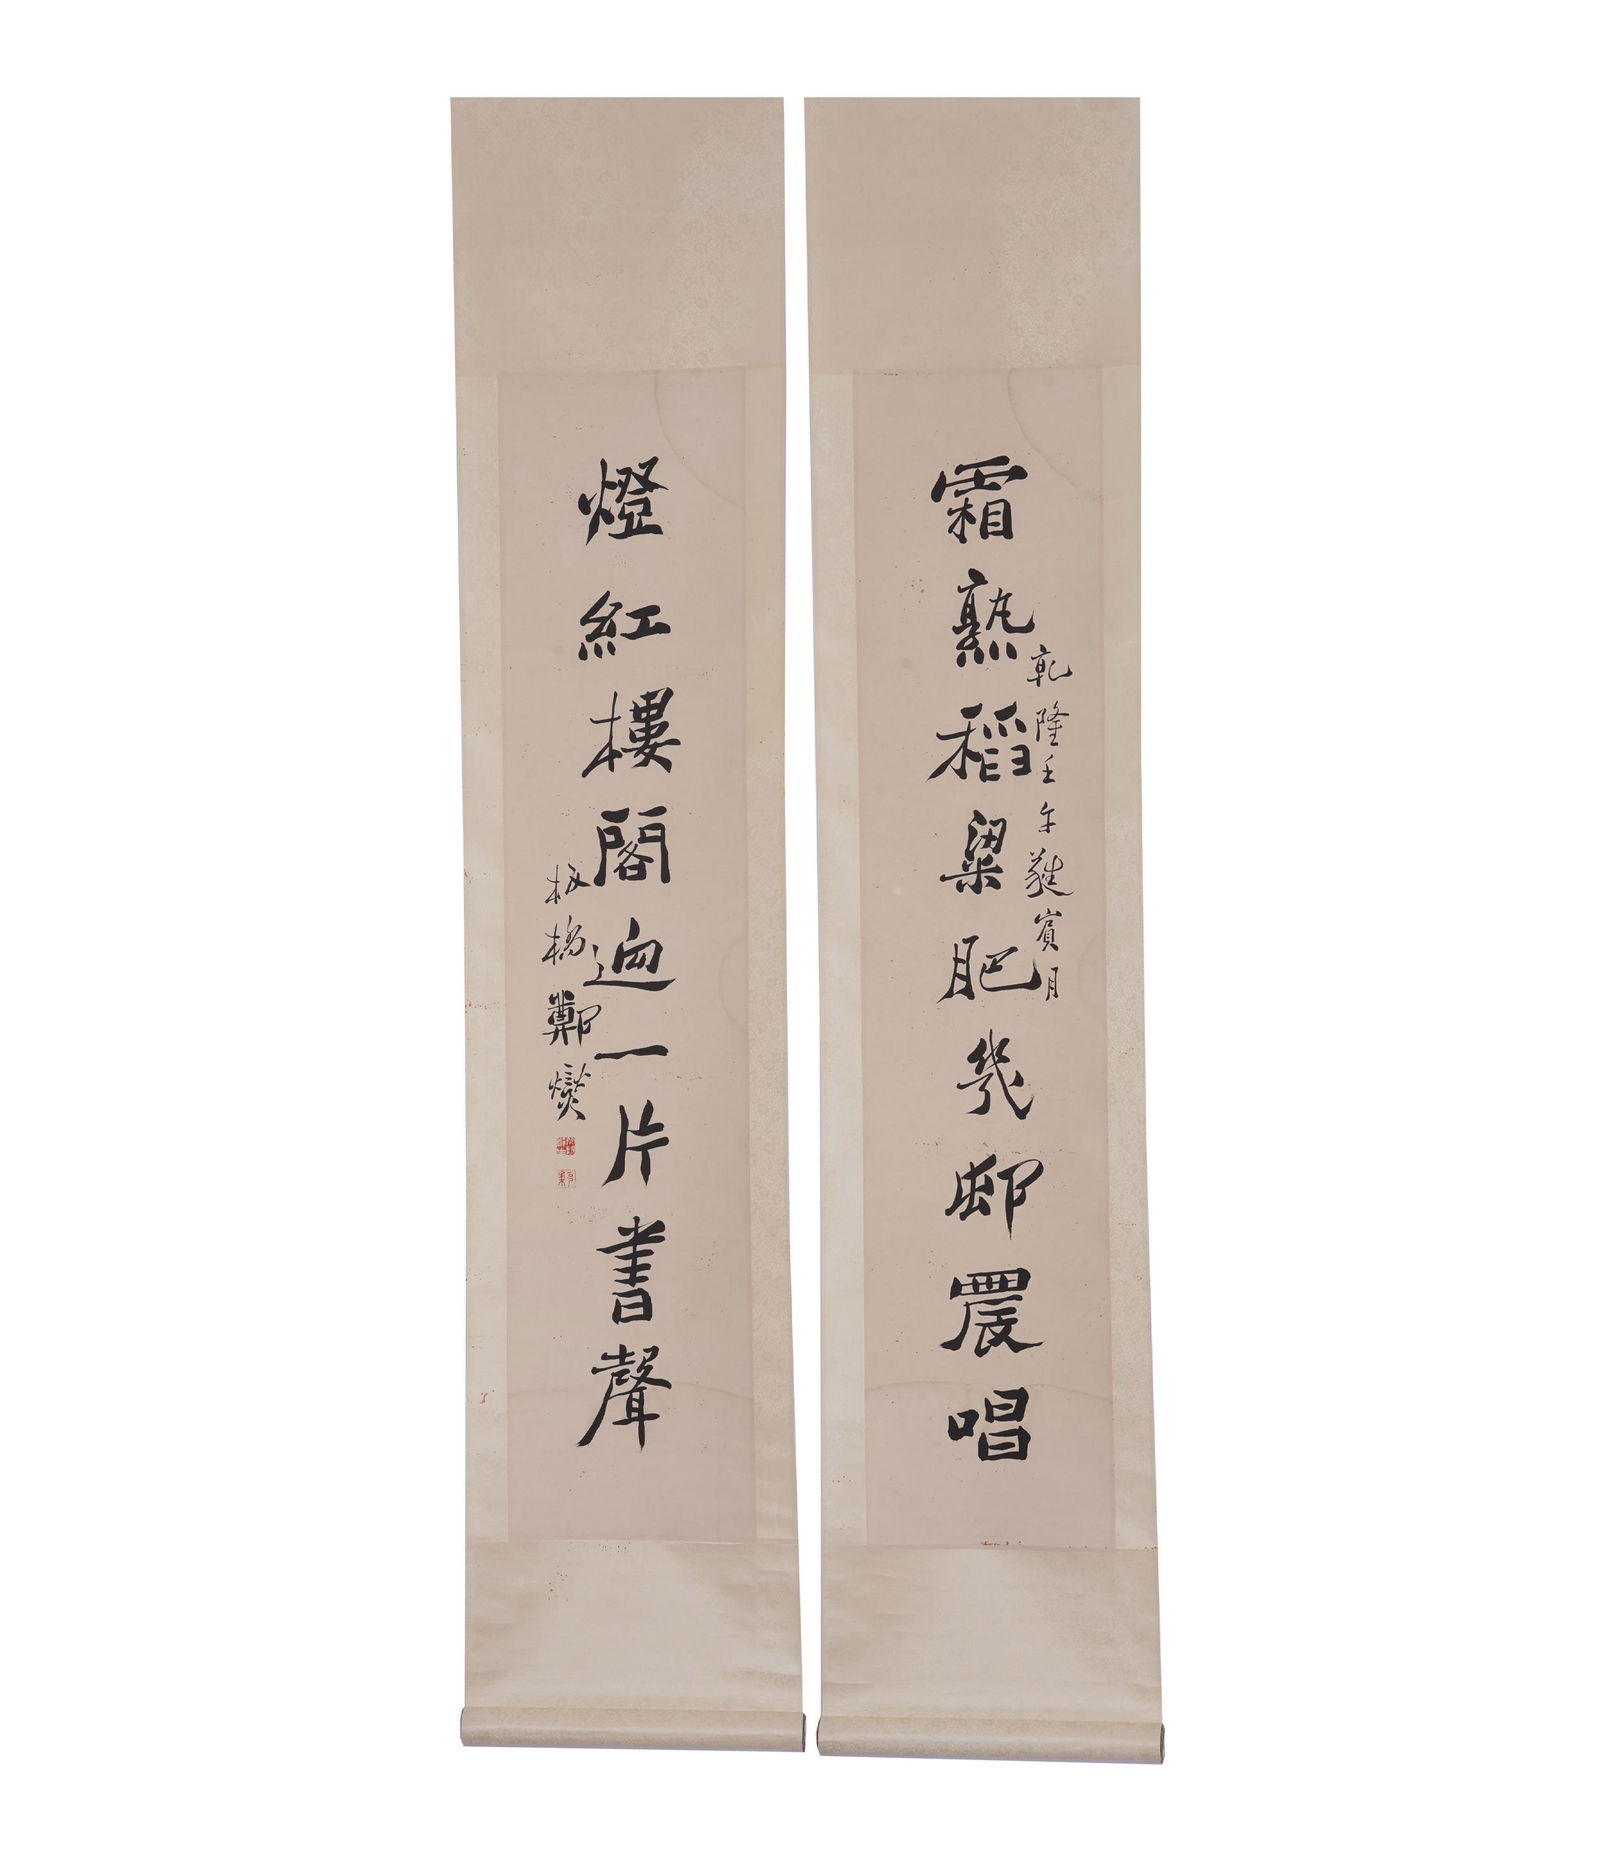 霜熟稻粱肥幾邨農唱
乾隆壬午蕤賓月
燈紅樓閣迥一片書聲
板橋鄭燮